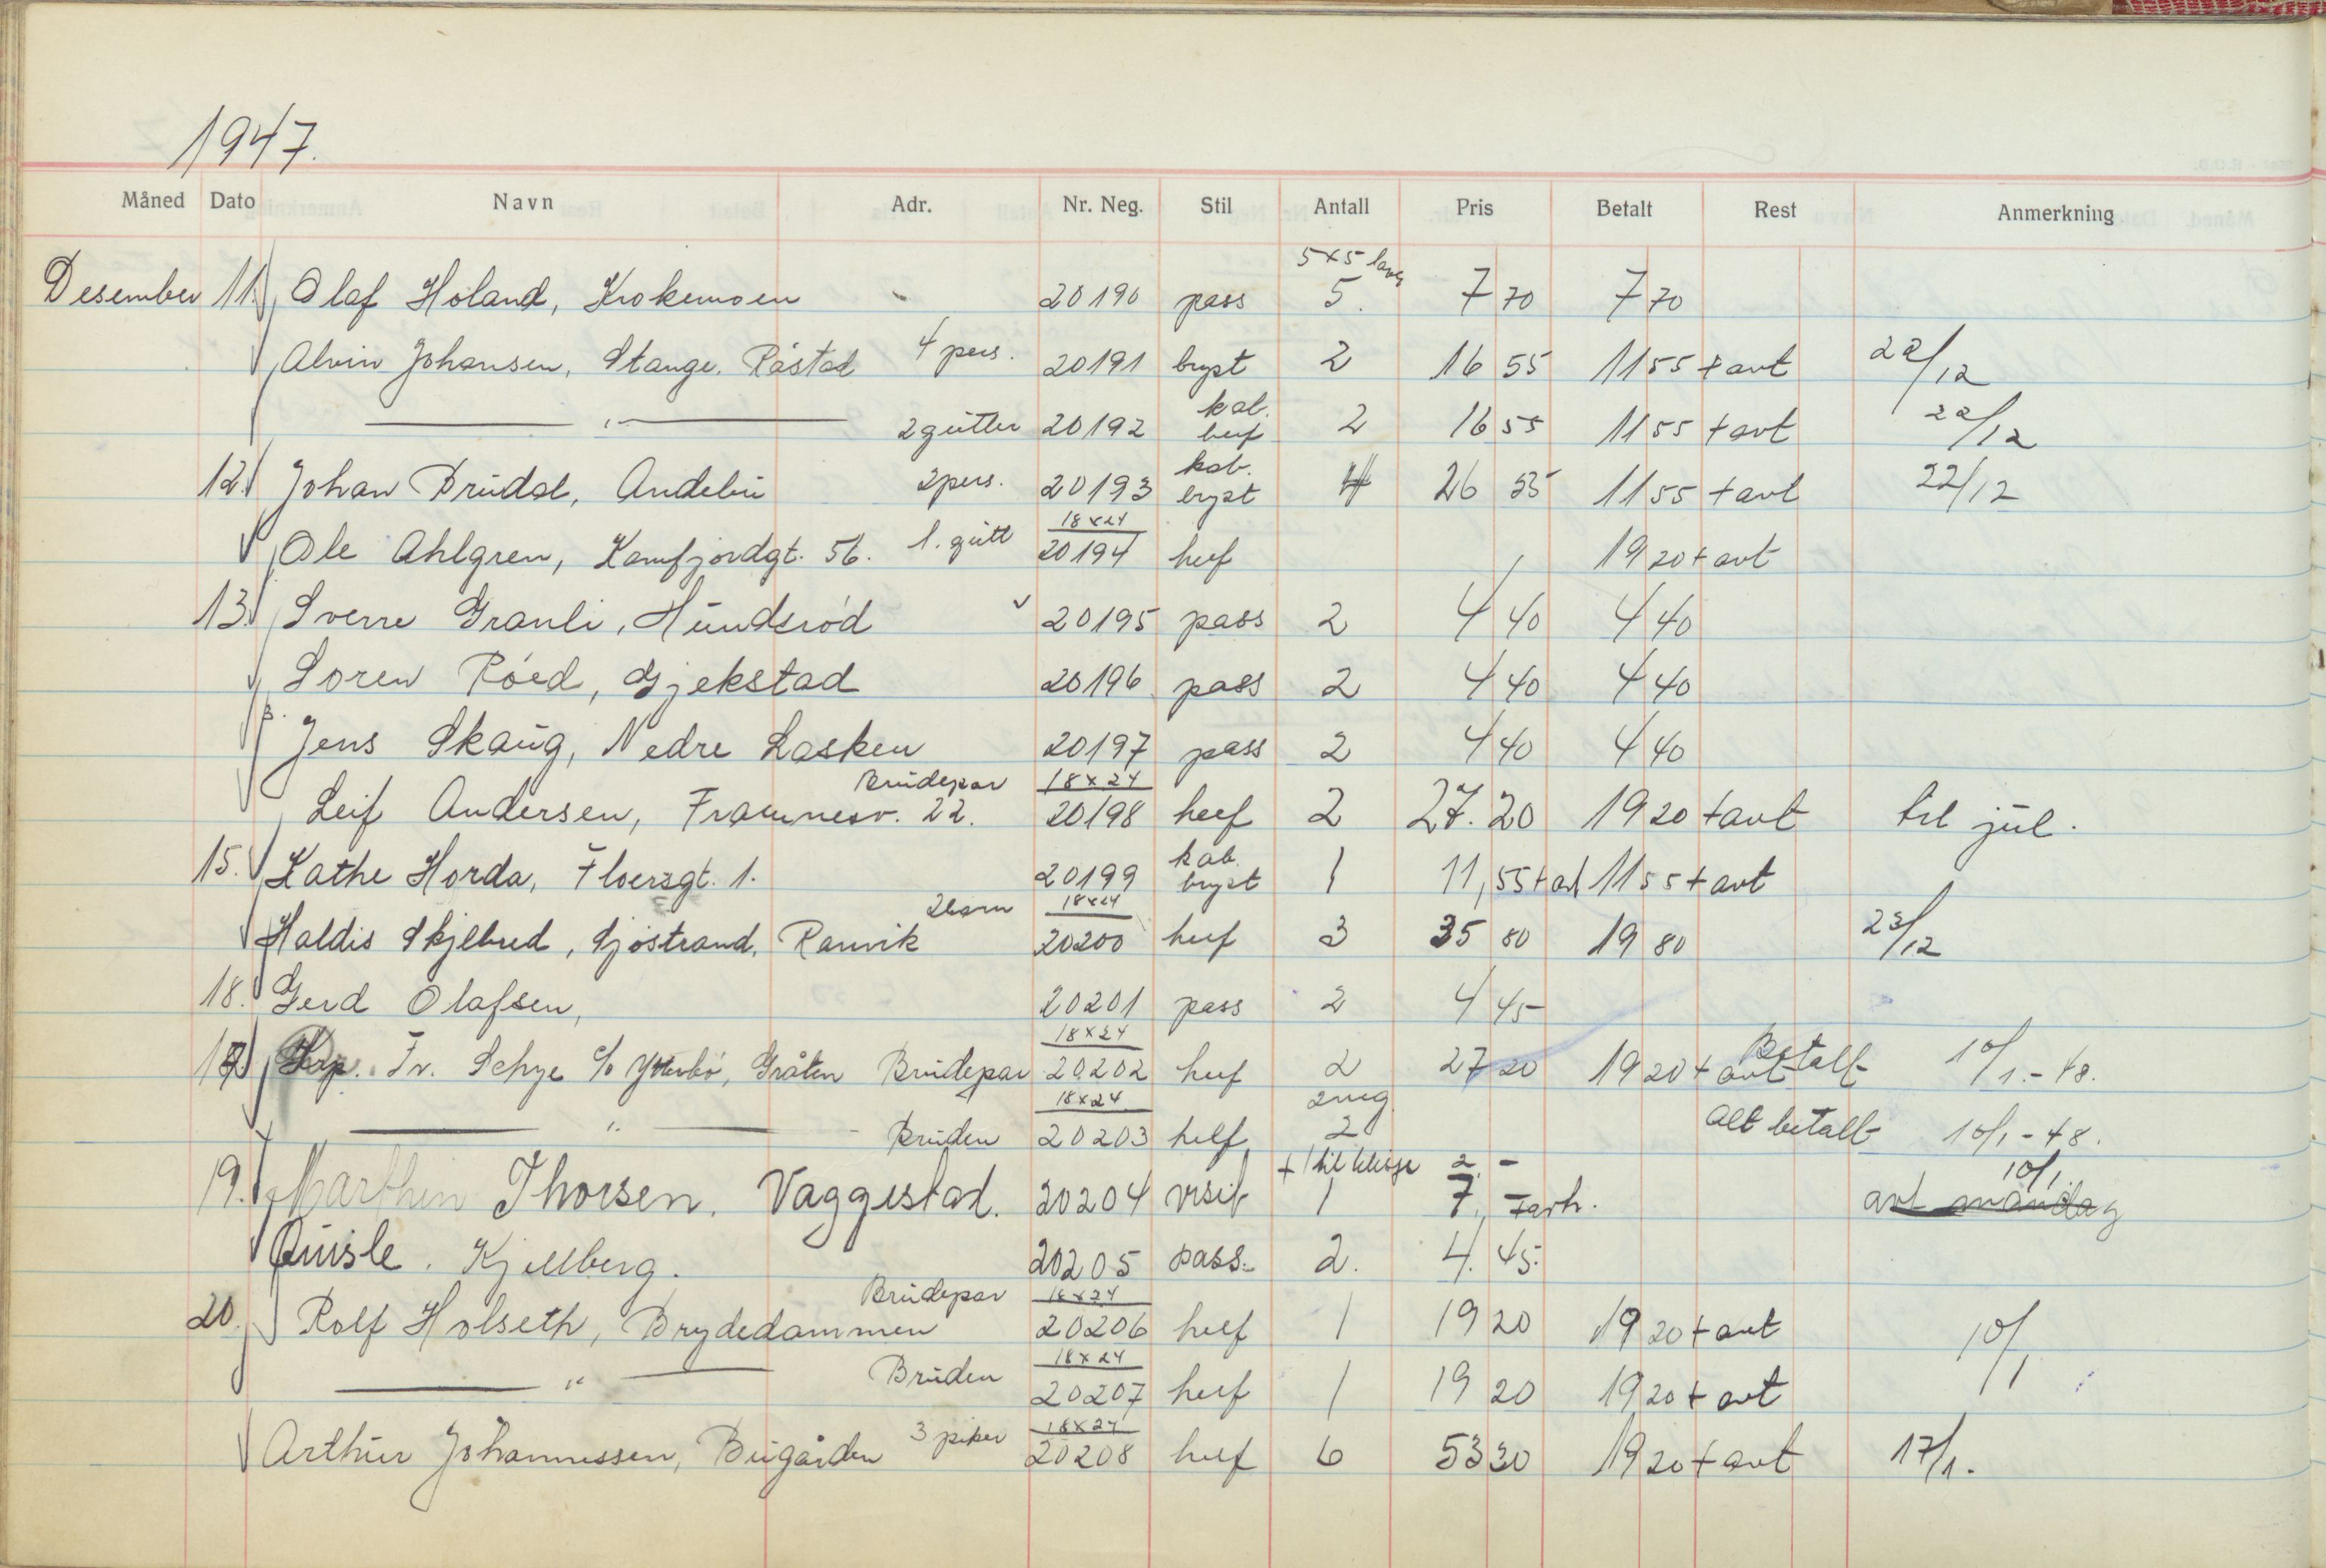 1947.
Måned Dato Navn Adr. Nr. Neg. Stil Antall Pris Betalt Rest Anmerkning
5x5
Desember 11. Olaf Holand, Krokemoen 20190 pass 5. 7 70 7 70
Alvin Johansen, Stange, Råstad 4 pers. 20191 bryst 2 16 55 11 55 + avt 22/12
kab.
" 2 gutter 20192 2 16 55 11 55 + avt 22/12
kab.
12. Johan Brudal, Andebu 2 pers. 20193 bryst 4 26 55 11 55 + avt 22/12
18x24
Ole Ahlgren, Kamfjordgt. 56. 1. gutt 20194 helf 19 20 + avt
13. Sverre Granli, Hundsrød 20195 pass 2 4 40 4 40
Soren Röed, Gjekstad 20196 pass 2 4 40 4 40
Jens Skaug, Nedre Lasken 20197 pass 2 4 40 4 40
Brudepar 18x24
Leif Andersen, Framnesv. 22. 20198 helf 2 27.20 19 20 + avt til jul.
kab.
15. Kathe Horda, Floersgt. 1. 20199 bryst 1 11,55 + avt 11 55 + avt
2 barn 18x24
Haldis Skjelbred, Sjøstrand, Ranvik 20200 helf 3 35 80 19 80 23/12
18. Gerd Olafsen, 20201 pass 2 4 45
18x24 Betalt
Fr. Schye c/o Ytterbø, Gråten Brudepar 20202 helf 2 27 20 19 20 + avt 10/1.-48.
18x24 2 neg.
" Bruden 20203 helf 2 alt betalt 10/1-48.
+ 1 til 2. - 10/1.
19. Marthin Thorsen. Vaggestad. 20204 visit 1 7, avt mandag
Quisle. Kjellberg. 20205 pass. 2. 4. 45.
Brudepar 18x24
20. Rolf Holseth, Brydedammen 20206 helf 1 19 20 19 20 + avt 10/1
18x24
" Bruden 20207 helf 1 19 20 19 20 + avt
18x24
Arthur Johannessen, Bugården 3 piker 20208 helf 6 53 30 19 20 + avt 17/1.